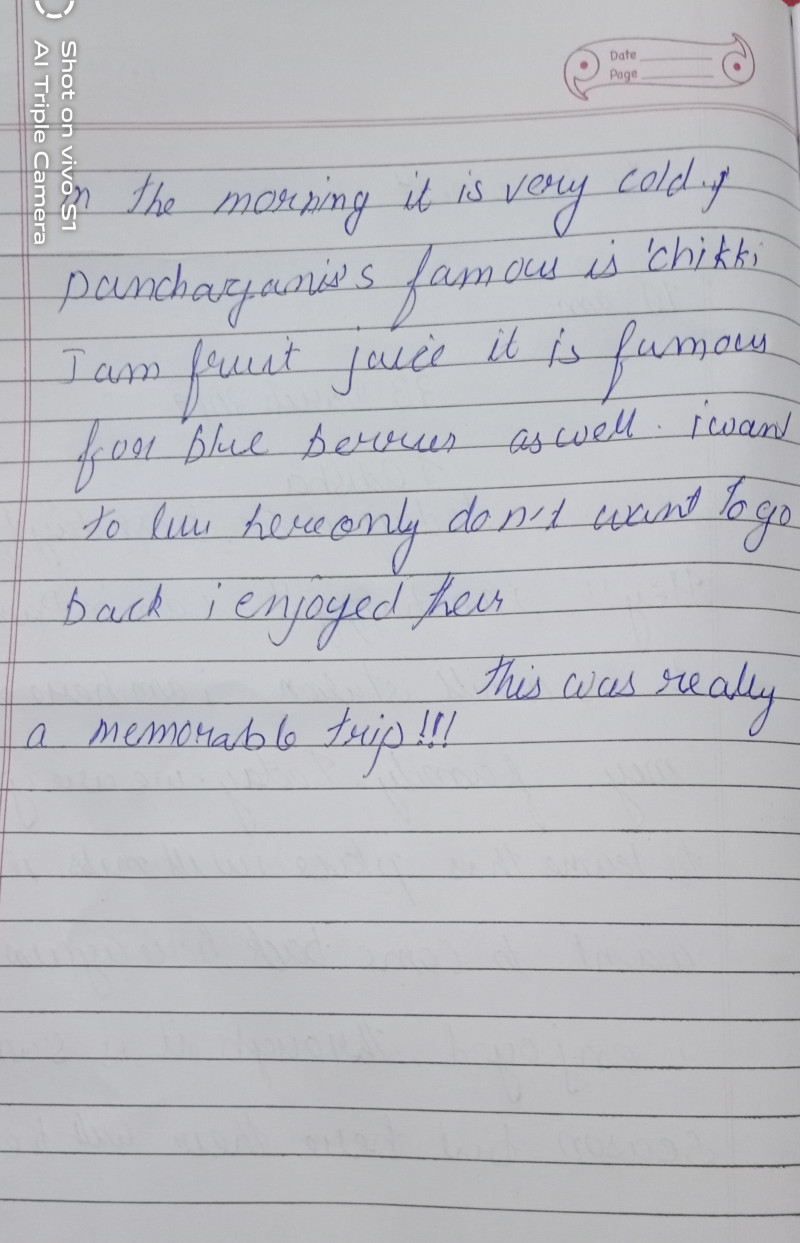 Date
Page
Shot on vivo S1
AI Triple Camera
in the morning it is very cold.
panchaganis's famous is 'chikki
Jam fruit juice it is famous
for blue berries as well. i want
to live here only don't want to go
back i enjoyed here
this was really
a memorable trip!!!